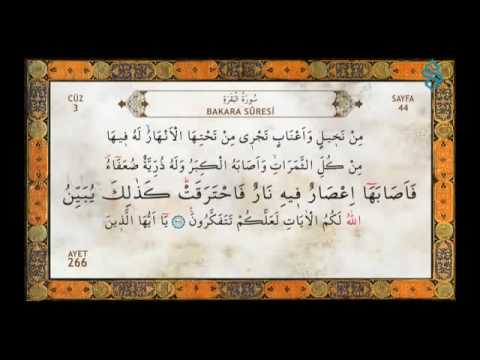 CÜZ
3
سُورَةُ الْبَقَرَةِ
BAKARA SÛRESİ
SAYFA
44
مِنْ نَخٖيلٍ وَاَعْنَابٍ تَجْرٖى مِنْ تَحْتِهَا الْاَنْهَارُۙ لَهُ فٖيهَا
مِنْ كُلِّ الثَّمَرَاتِۙ وَاَصَابَهُ الْكِبَرُ وَلَهُ ذُرِّيَّةٌ ضُعَفَٓاءُۖ
فَاَصَابَهَٓا اِعْصَارٌ فٖيهِ نَارٌ فَاحْتَرَقَتْؕ كَذٰلِكَ يُبَيِّنُ
اللّٰهُ لَكُمُ الْاٰيَاتِ لَعَلَّكُمْ تَتَفَكَّرُونَۚ ﴿٢٦٦﴾ يَٓا اَيُّهَا الَّذٖينَ
AYET
266